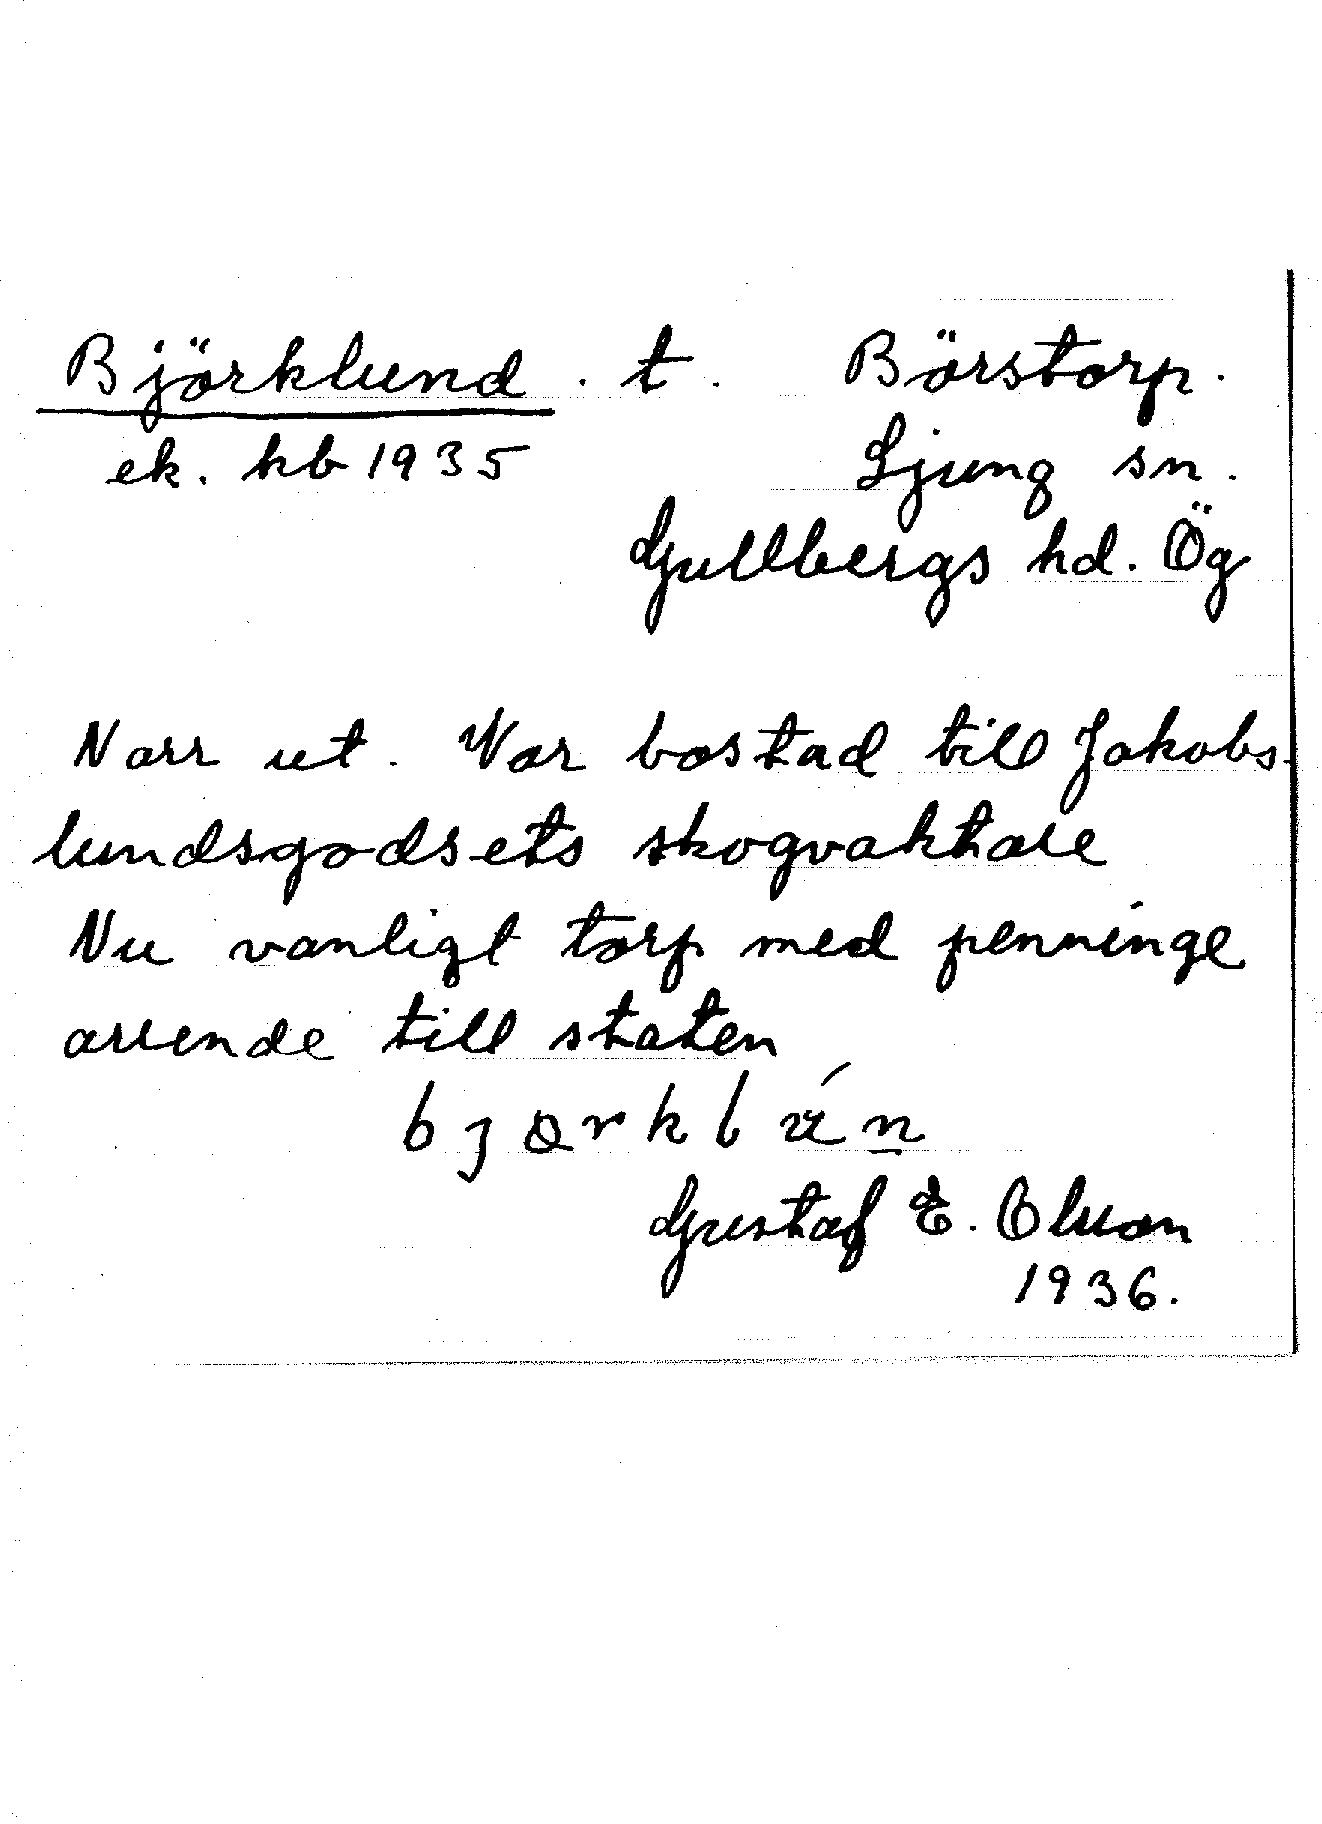 Björklund. t. Börstorp.
ek. hb 1935 Ljung sn.
Gullbergs hd. Ög
Norr ut. Var bostad till Jakobs-
lundsgodsets skogvaktare
Nu vanligt torp med penninge
arrende till staten
Gustaf E. Olsson
1936.